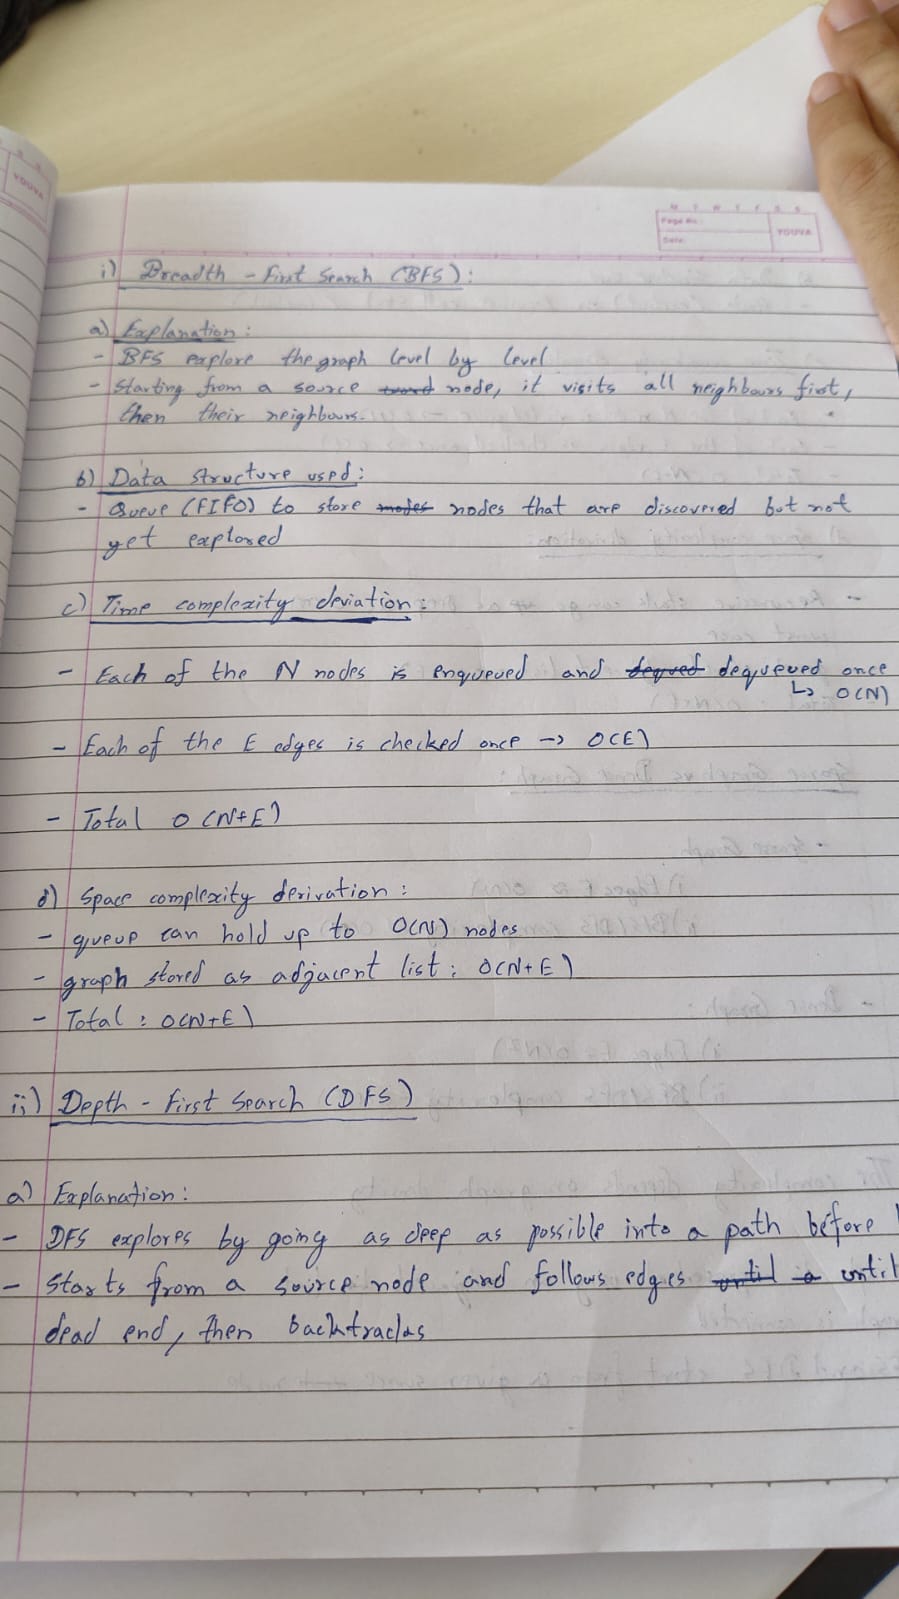 YOUVA
M T W T F S S
Page No.:
Date:
YOUVA
i) Breadth - First Search (BFS):
a) Explanation:
- BFS explore the graph level by level
- Starting from a source node, it visits all neighbours first,
then their neighbours.
b) Data structure used:
- Queue (FIFO) to store nodes that are discovered but not
yet explored
c) Time complexity deviation:
- Each of the N nodes is enqueued and dequeued once
↳ O(N)
- Each of the E edges is checked once → O(E)
- Total O(N+E)
d) Space complexity derivation:
- queue can hold up to O(N) nodes
- graph stored as adjacent list: O(N+E)
- Total: O(N+E)
ii) Depth - First Search (DFS)
a) Explanation:
- DFS explores by going as deep as possible into a path before
- Starts from a source node and follows edges until
dead end, then backtracks